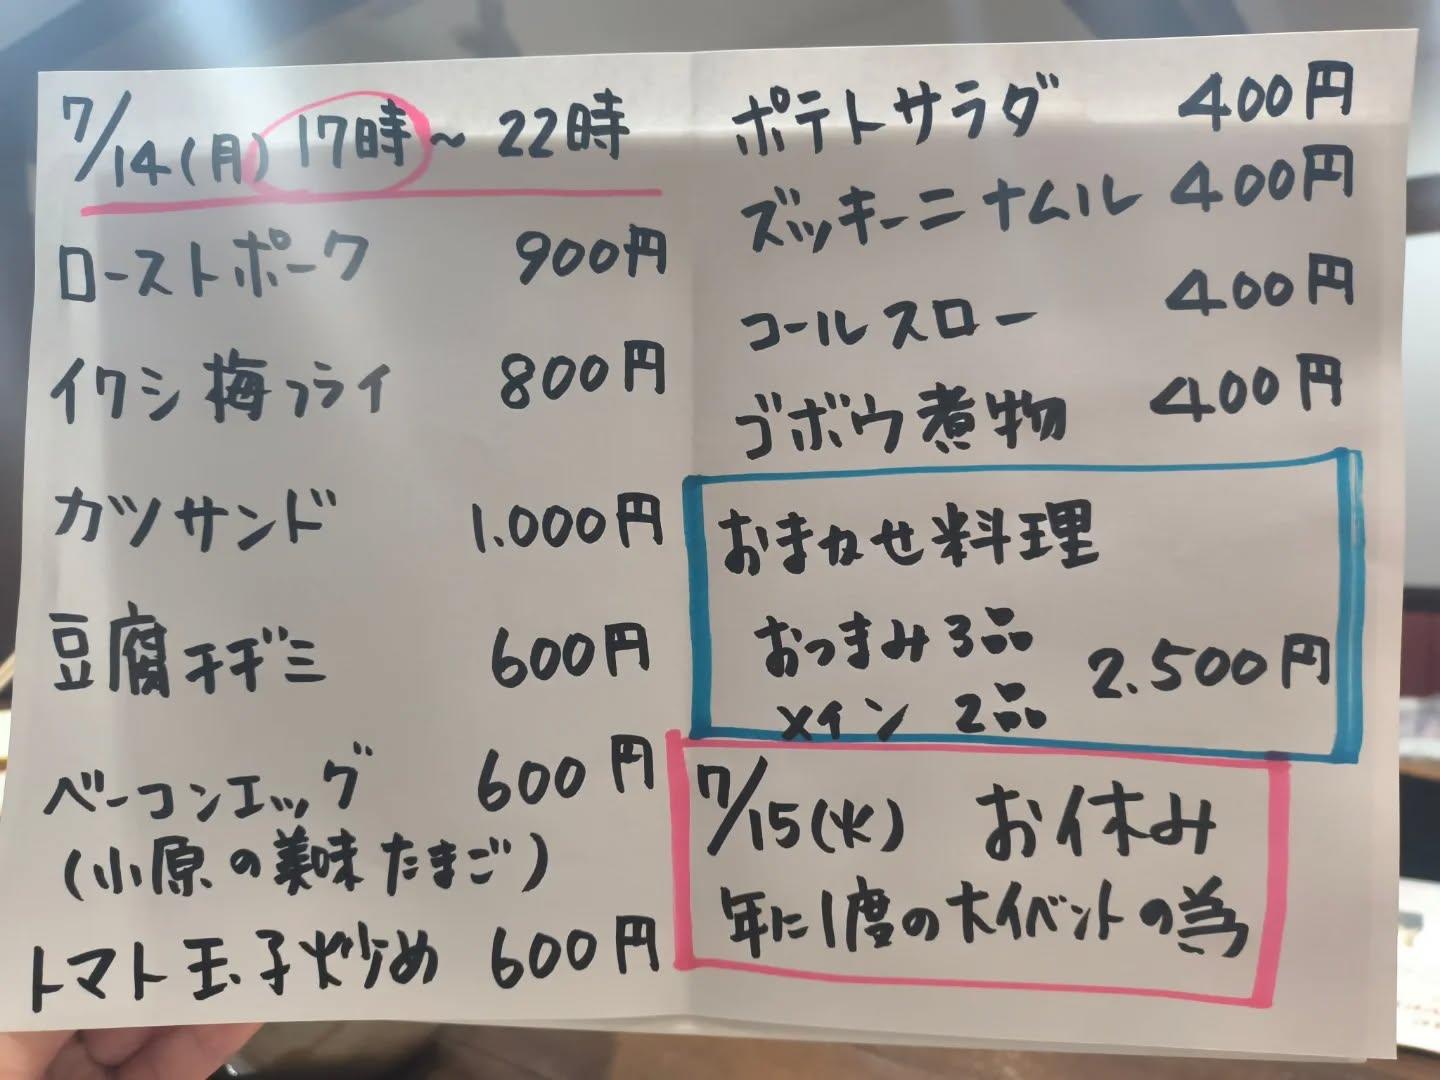 7/14(月) 17時~22時
ローストポーク 900円
イワシ梅フライ 800円
カツサンド 1.000円
豆腐チヂミ 600円
ベーコンエッグ 600円
(小原の美味たまご)
トマト玉子炒め 600円
ポテトサラダ 400円
ズッキーニナムル 400円
コールスロー 400円
ゴボウ煮物 400円
おまかせ料理
おつまみ3品
メイン 2品 2.500円
7/15(火) お休み
年に1度の大イベントの為